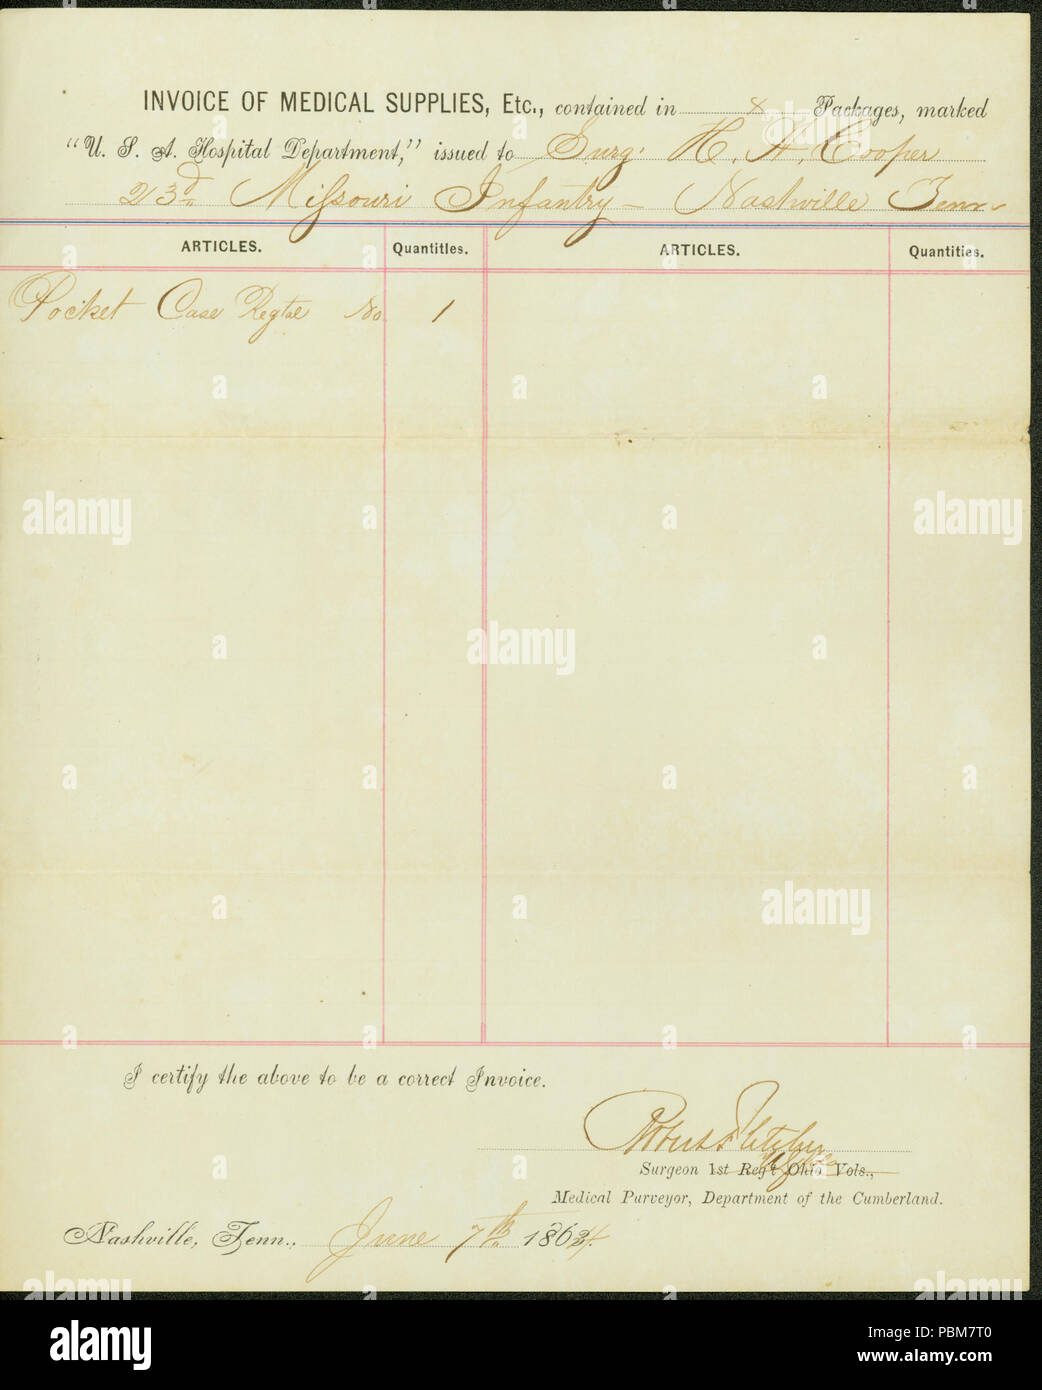 INVOICE OF MEDICAL SUPPLIES, Etc., contained in x Packages, marked
"U. S. A. Hospital Department," issued to Surg. H. H. Cooper
23d Missouri Infantry - Nashville Tenn
ARTICLES. Quantities. ARTICLES. Quantities.
Pocket Case Regtal No 1
I certify the above to be a correct Invoice.
Robert Fletcher
Surgeon 1st Reg't Ohio Vols.,
Medical Purveyor, Department of the Cumberland.
Nashville, Tenn., June 7th 1864.
alamy
alamy
Image ID: PBM7T0
www.alamy.com